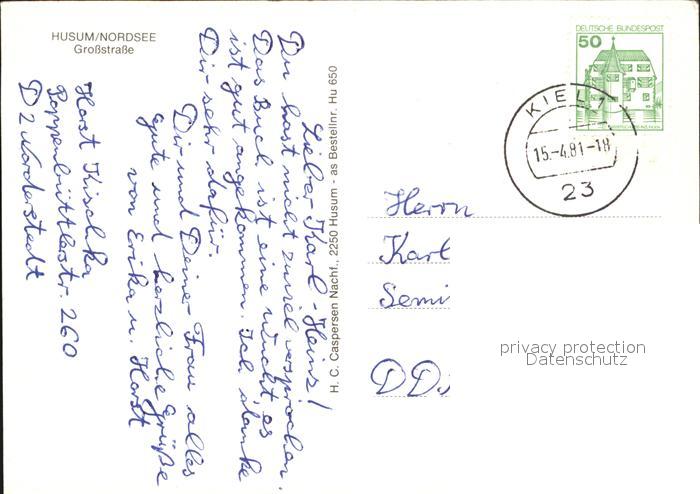 HUSUM/NORDSEE
Großstraße
Lieber Karl-Heinz!
Du hast nicht zuviel versprochen.
Das Buch ist eine Wucht, es
ist gut angekommen. Ich danke
Dir sehr dafür.
Dir und Deiner Frau alles
Gute und herzliche Grüße
von Erika u. Horst
Horst Kischka
Poppenbüttlerstr. 260
D 2 Norderstedt
H. C. Caspersen Nachf., 2250 Husum - as Bestellnr. Hu 650
DEUTSCHE BUNDESPOST
50
KIEL 1
15.-4.81-18
23
Herrn
Karl
Semi
DD
privacy protection
Datenschutz